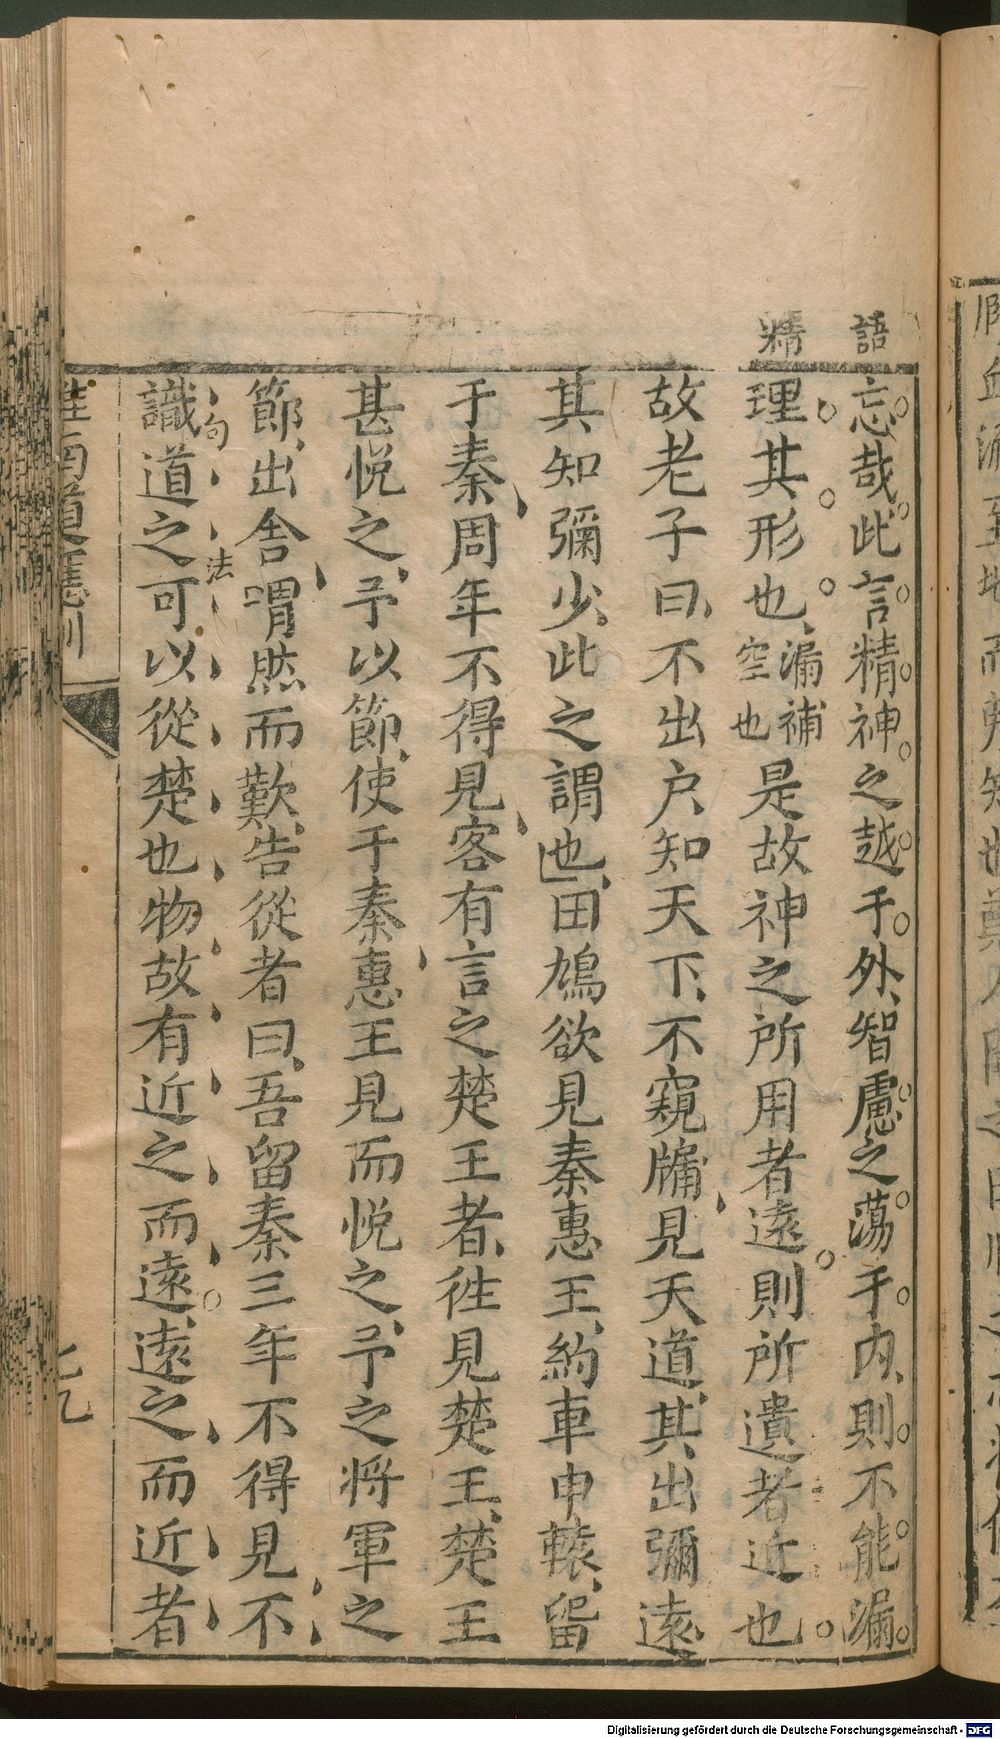 語
精
忘哉此言精神之越于外智慮之蕩于内則不能漏
理其形也漏補空也是故神之所用者遠則所遺者近也
故老子曰不出户知天下不窺牖見天道其出彌遠
其知彌少此之謂也田鳩欲見秦惠王約車申轅留
于秦周年不得見客有言之楚王者徃見楚王楚王
甚悦之予以節使于秦惠王見而悦之予之將軍之
節出舍喟然而歎告從者曰吾留秦三年不得見不
句法
識道之可以從楚也物故有近之而遠遠之而近者
淮南道應訓
七九
Digitalisierung gefördert durch die Deutsche Forschungsgemeinschaft - DFG